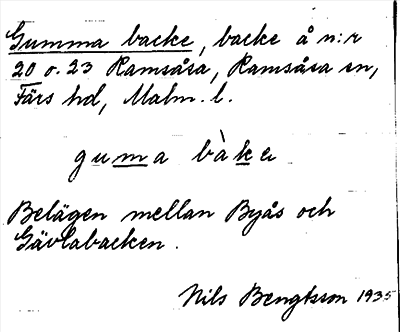 Gumma backe, backe å n:r
20 o. 23 Ramsåsa, Ramsåsa sn,
Färs hd, Malm. l.
guma bàke
Belägen mellan Byås och
Gävlabacken.
Nils Bengtsson 1935